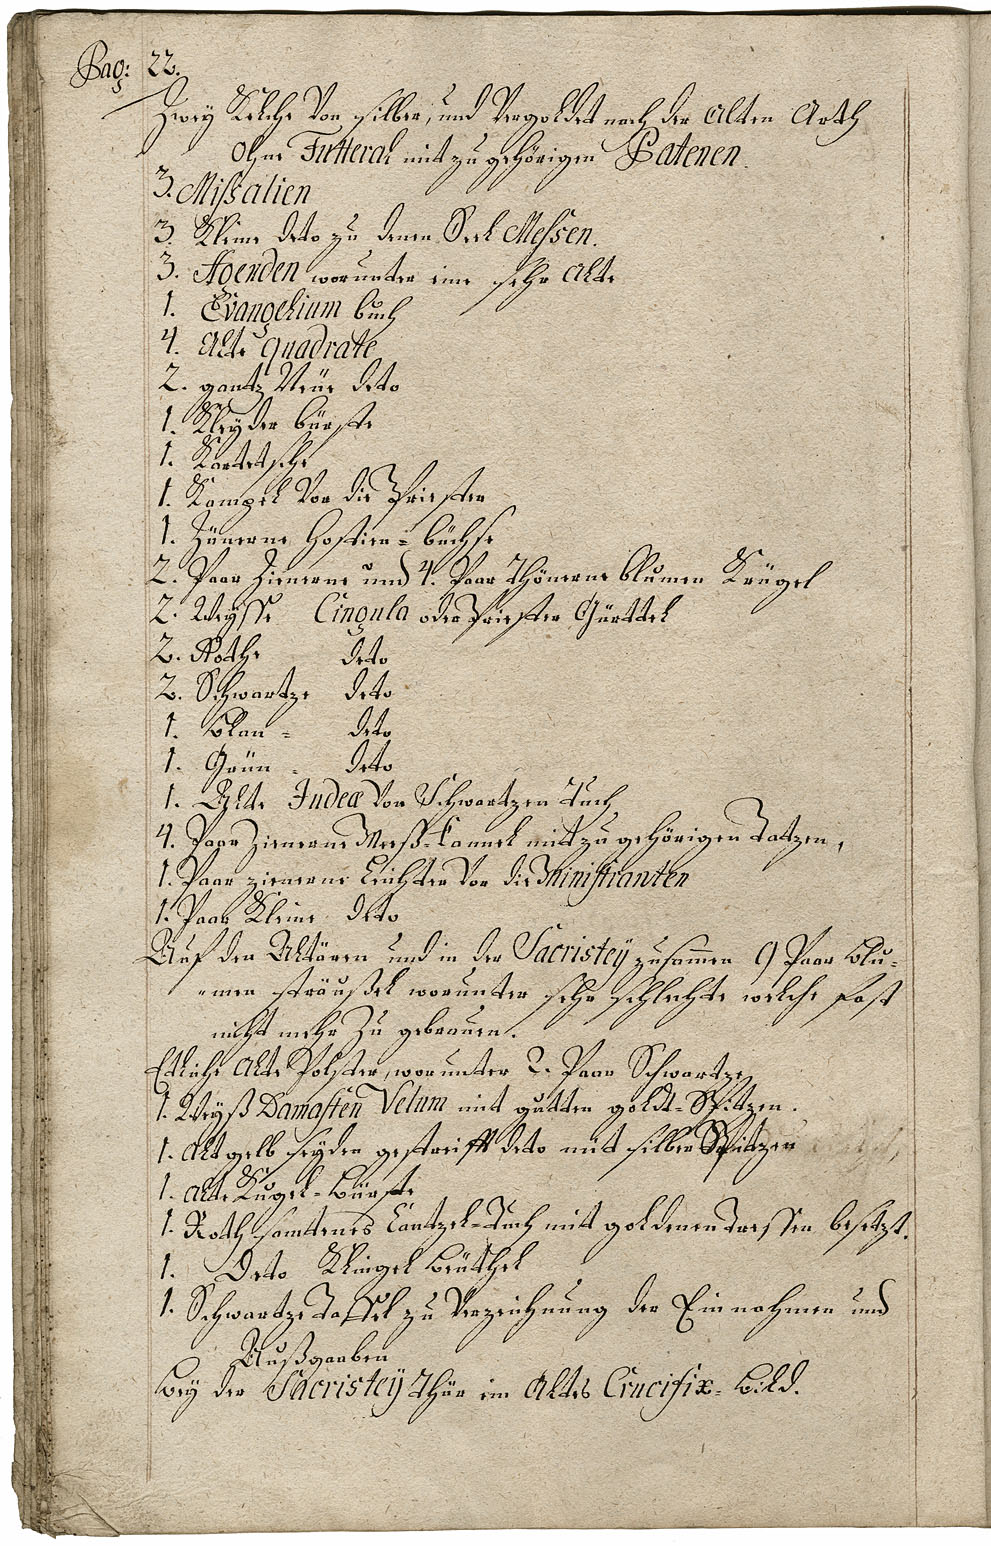 Pag: 22.
Zwey Kelche von silber, und vergoldet nach der alten Arth
ohne Futteral mit zu gehörigen Patenen.
3. Missalien
3. Kleine deto zu denen Seel Messen.
3. Agenden worunter eine sehr alte
1. Evangelium buch
4. Alte Quadrate
2. gantz Neüe deto
1. Kleyder bürste
1. Kartetsche
1. Kampel vor die Priester
1. Zünerne Hostien = büchse
2. Paar Zienerne und 4. Paar Thönerne blumen Krügel
2. Weysse Cingula oder Priester Gürttel
2. Rothe deto
2. Schwartze deto
1. blau = deto
1. Grün - deto
1. Alte Judex von Schwartzen Tuch
4. Paar Zienerne Mess-Kannel mit zu gehörigen Tatzen,
1. Paar zienerne Leichter vor die Ministranten
1. Paar Kleine deto
Auf den Altären und in der Sacristeÿ zusam̅en 9 Paar Blu=
=men sträußel worunter sehr schlechte welche fast
nicht mehr zu gebrauen.
Etliche Alte Polster, worunter 2. Paar Schwartze
1. Weyß Damasten Velum mit gutten goldt=Spitzen.
1. Alt gelb seyden gestreifft deto mit silber Spitzen
1. alte Kugel=Bürste
1. Roth samtenes Cantzel=Tuch mit goldenen Tressen besetzt.
1. Deto Klingel beüthel
1. Schwartze Taffel zu Verzeichnung der Einnahmen und
Außgaaben
bey der Sacristeÿ Thür ein Altes Crucifix=bild.